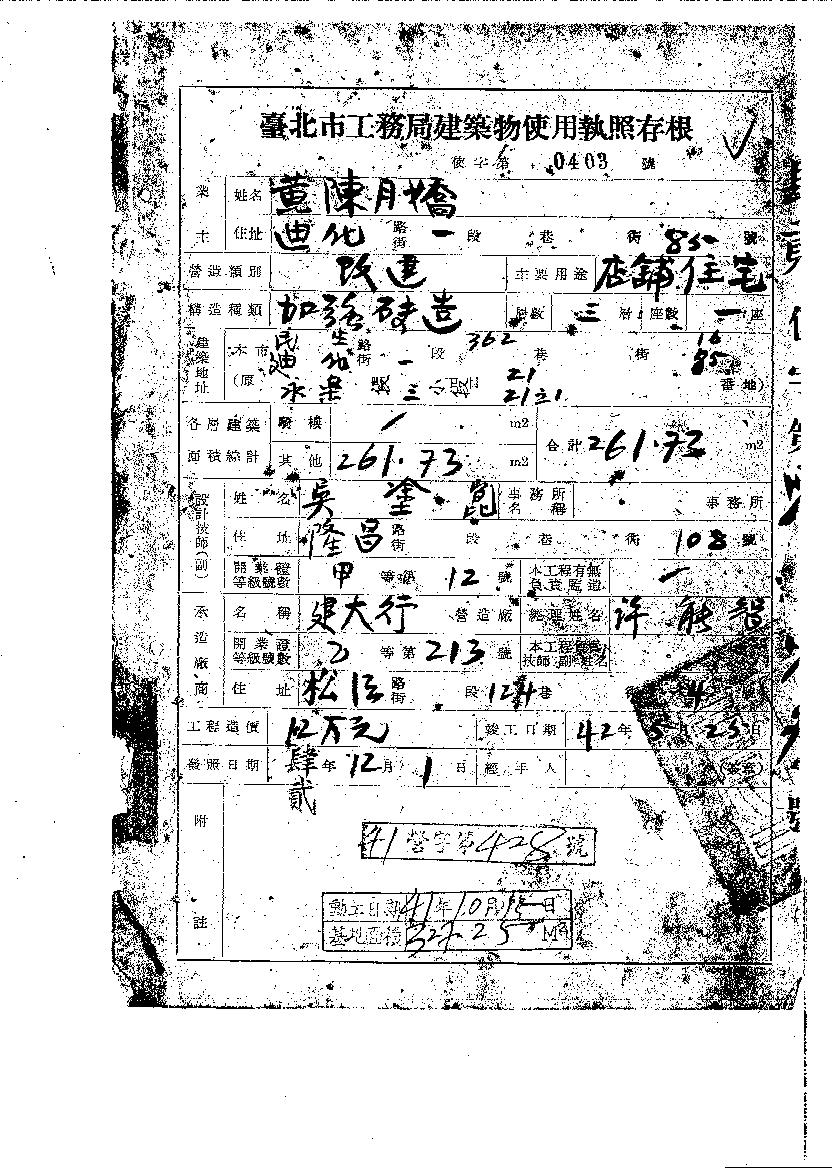 臺北市工務局建築物使用執照存根
使字第 0403 號
業主 姓名 黃陳月嬌
住址 迪化 路街 一 段 巷 衖 85 號
營造類別 改建 主要用途 店鋪住宅
構造種類 加強磚造 層數 三 層 座數 一 座
建築地址 本市 民生 路街 段 362 巷 衖 16
迪化 一 85
(原 永樂 段 三 小段 21 番地)
21之1
各層建築面積綜計 騎樓 / m2 合計 261.73 m2
其他 261.73 m2
設計技師(副) 姓名 吳塗崑 事務所名稱 事務所
住址 隆昌 路街 段 巷 衖 108 號
開業證等級號數 甲 等第 12 號 本工程有無負責監造 一
承造廠商 名稱 建大行 營造廠 總理姓名 許能智
開業證等級號數 乙 等第 213 號 本工程負責技師(副)姓名
住址 松江 路街 段 124 巷 衖 4 號
工程造價 12万元 竣工日期 42年5月25日
發照日期 肆貳年12月1日 經手人 (簽章)
附註
41營字第428號
動工日期41年10月15日
基地面積 M2